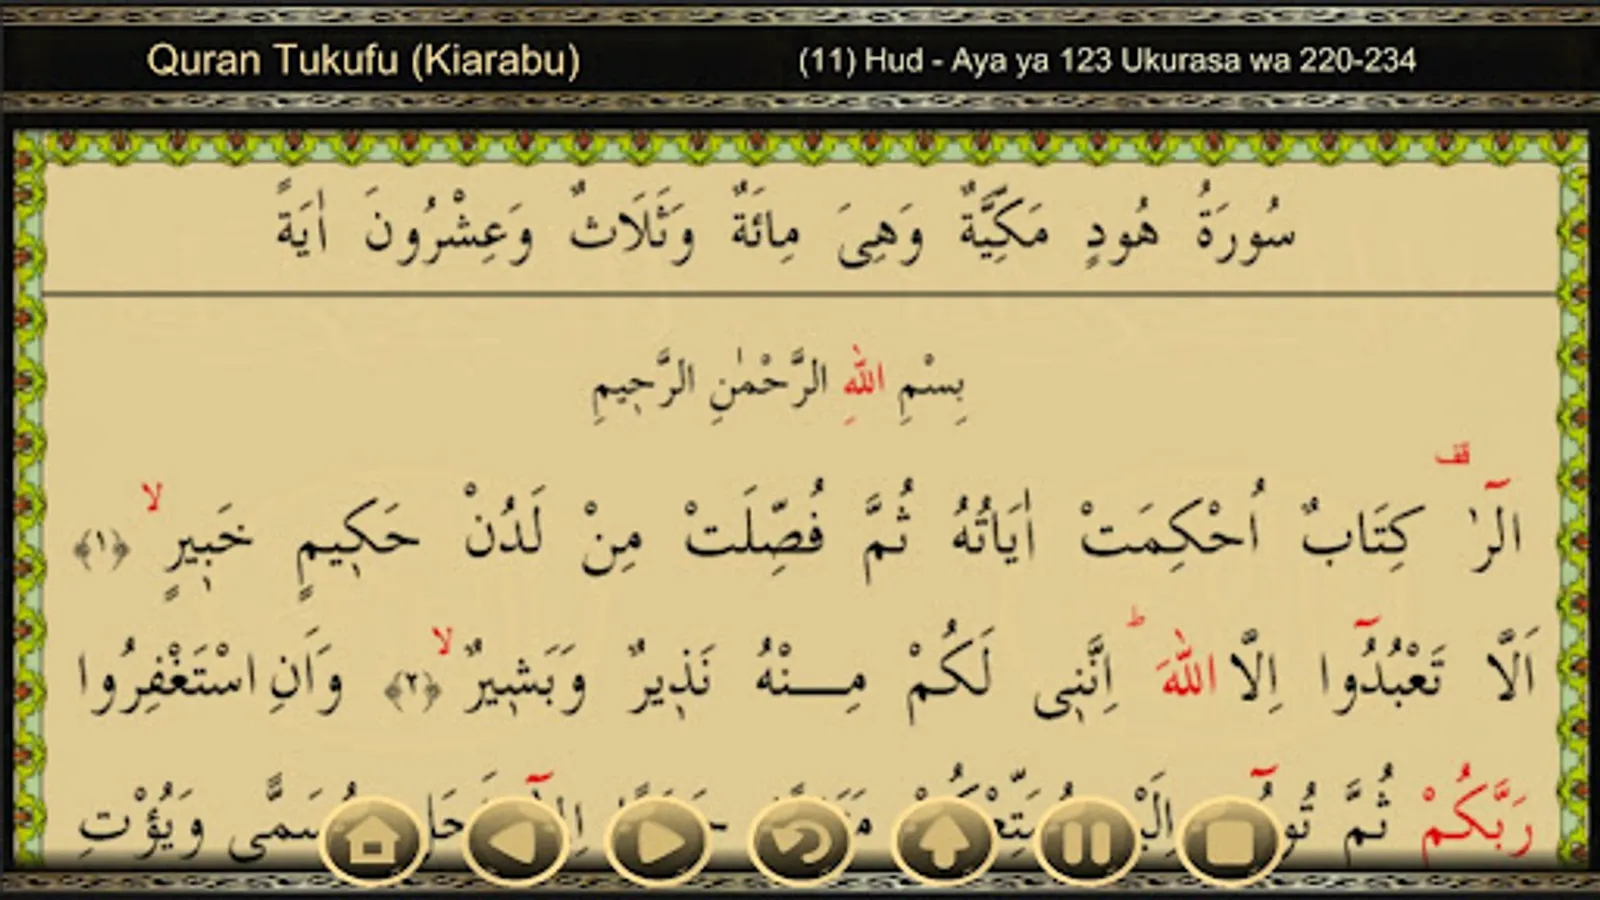 Quran Tukufu (Kiarabu)
(11) Hud - Aya ya 123 Ukurasa wa 220-234
سُورَةُ هُودٍ مَكِّيَّةٌ وَهِىَ مِائَةٌ وَثَلَاثٌ وَعِشْرُونَ اٰيَةً
بِسْمِ اللّٰهِ الرَّحْمٰنِ الرَّح۪يمِ
الٓرٰ۠ كِتَابٌ اُحْكِمَتْ اٰيَاتُهُ ثُمَّ فُصِّلَتْ مِنْ لَدُنْ حَك۪يمٍ خَب۪يرٍۙ ﴿١﴾
اَلَّا تَعْبُدُٓوا اِلَّا اللّٰهَۜ اِنَّن۪ى لَكُمْ مِنْهُ نَذ۪يرٌ وَبَش۪يرٌۙ ﴿٢﴾ وَاَنِ اسْتَغْفِرُوا
رَبَّكُمْ ثُمَّ وَيُؤْتِ